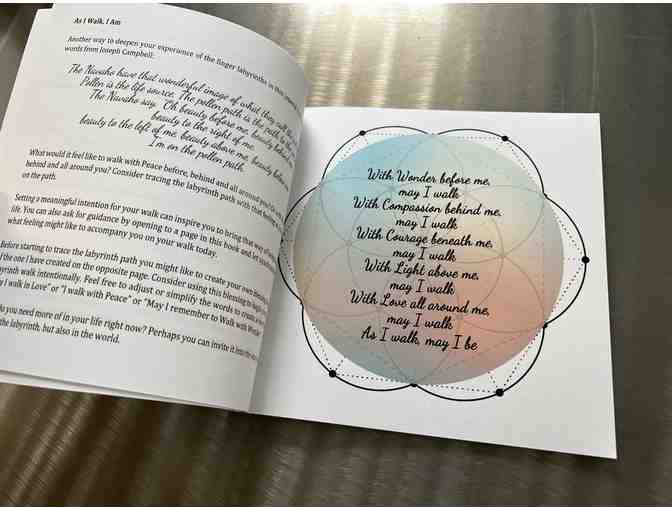 As I Walk, I Am
Another way to deepen your experience of the finger labyrinths in this
words from Joseph Campbell:
The Navaho have that wonderful image of what they call the
Pollen is the life source. The pollen path is the path to the
The Navaho say, Oh beauty before me, beauty behind
beauty to the right of me,
beauty to the left of me, beauty above me, beauty below
I'm on the pollen path.
What would it feel like to walk with Peace before, behind and all around you?
behind and all around you? Consider tracing the labyrinth path with that
on the path.
Setting a meaningful intention for your walk can inspire you to bring that way of
life. You can also ask for guidance by opening to a page in this book and let
what feeling might like to accompany you on your walk today.
Before starting to trace the labyrinth path you might like to create your own
the one I have created on the opposite page. Consider using this blessing to
labyrinth walk intentionally. Feel free to adjust or simplify the words to
I walk in Love" or "I walk with Peace" or "May I remember to Walk with
you need more of in your life right now? Perhaps you can invite it into
the labyrinth, but also in the world.
With Wonder before me,
may I walk
With Compassion behind me,
may I walk
With Courage beneath me,
may I walk
With Light above me,
may I walk
With Love all around me,
may I walk
As I walk, may I be